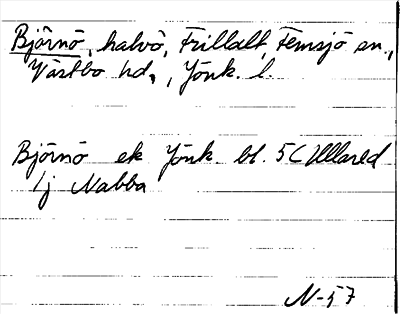 Björnö, halvö, Frillalt, Femsjö sn.,
Västbo hd., Jönk. l.
Björnö ek Jönk. bl. 5C Ullared
1j Nabba
N-57